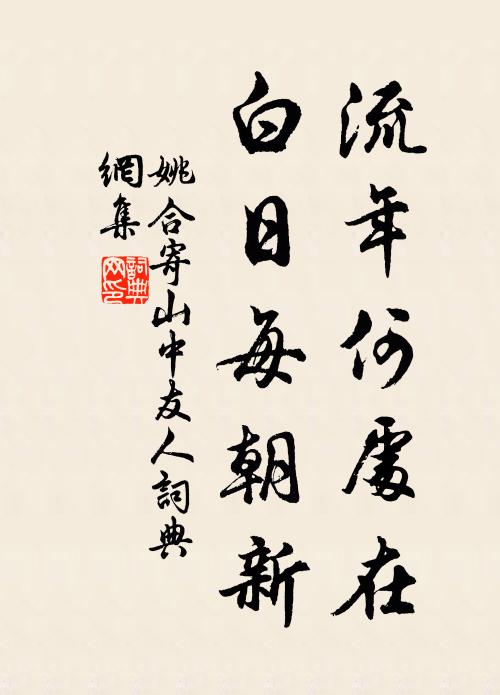 流年何處在
白日每朝新
姚合寄山中友人詞典
網集
詞典網印